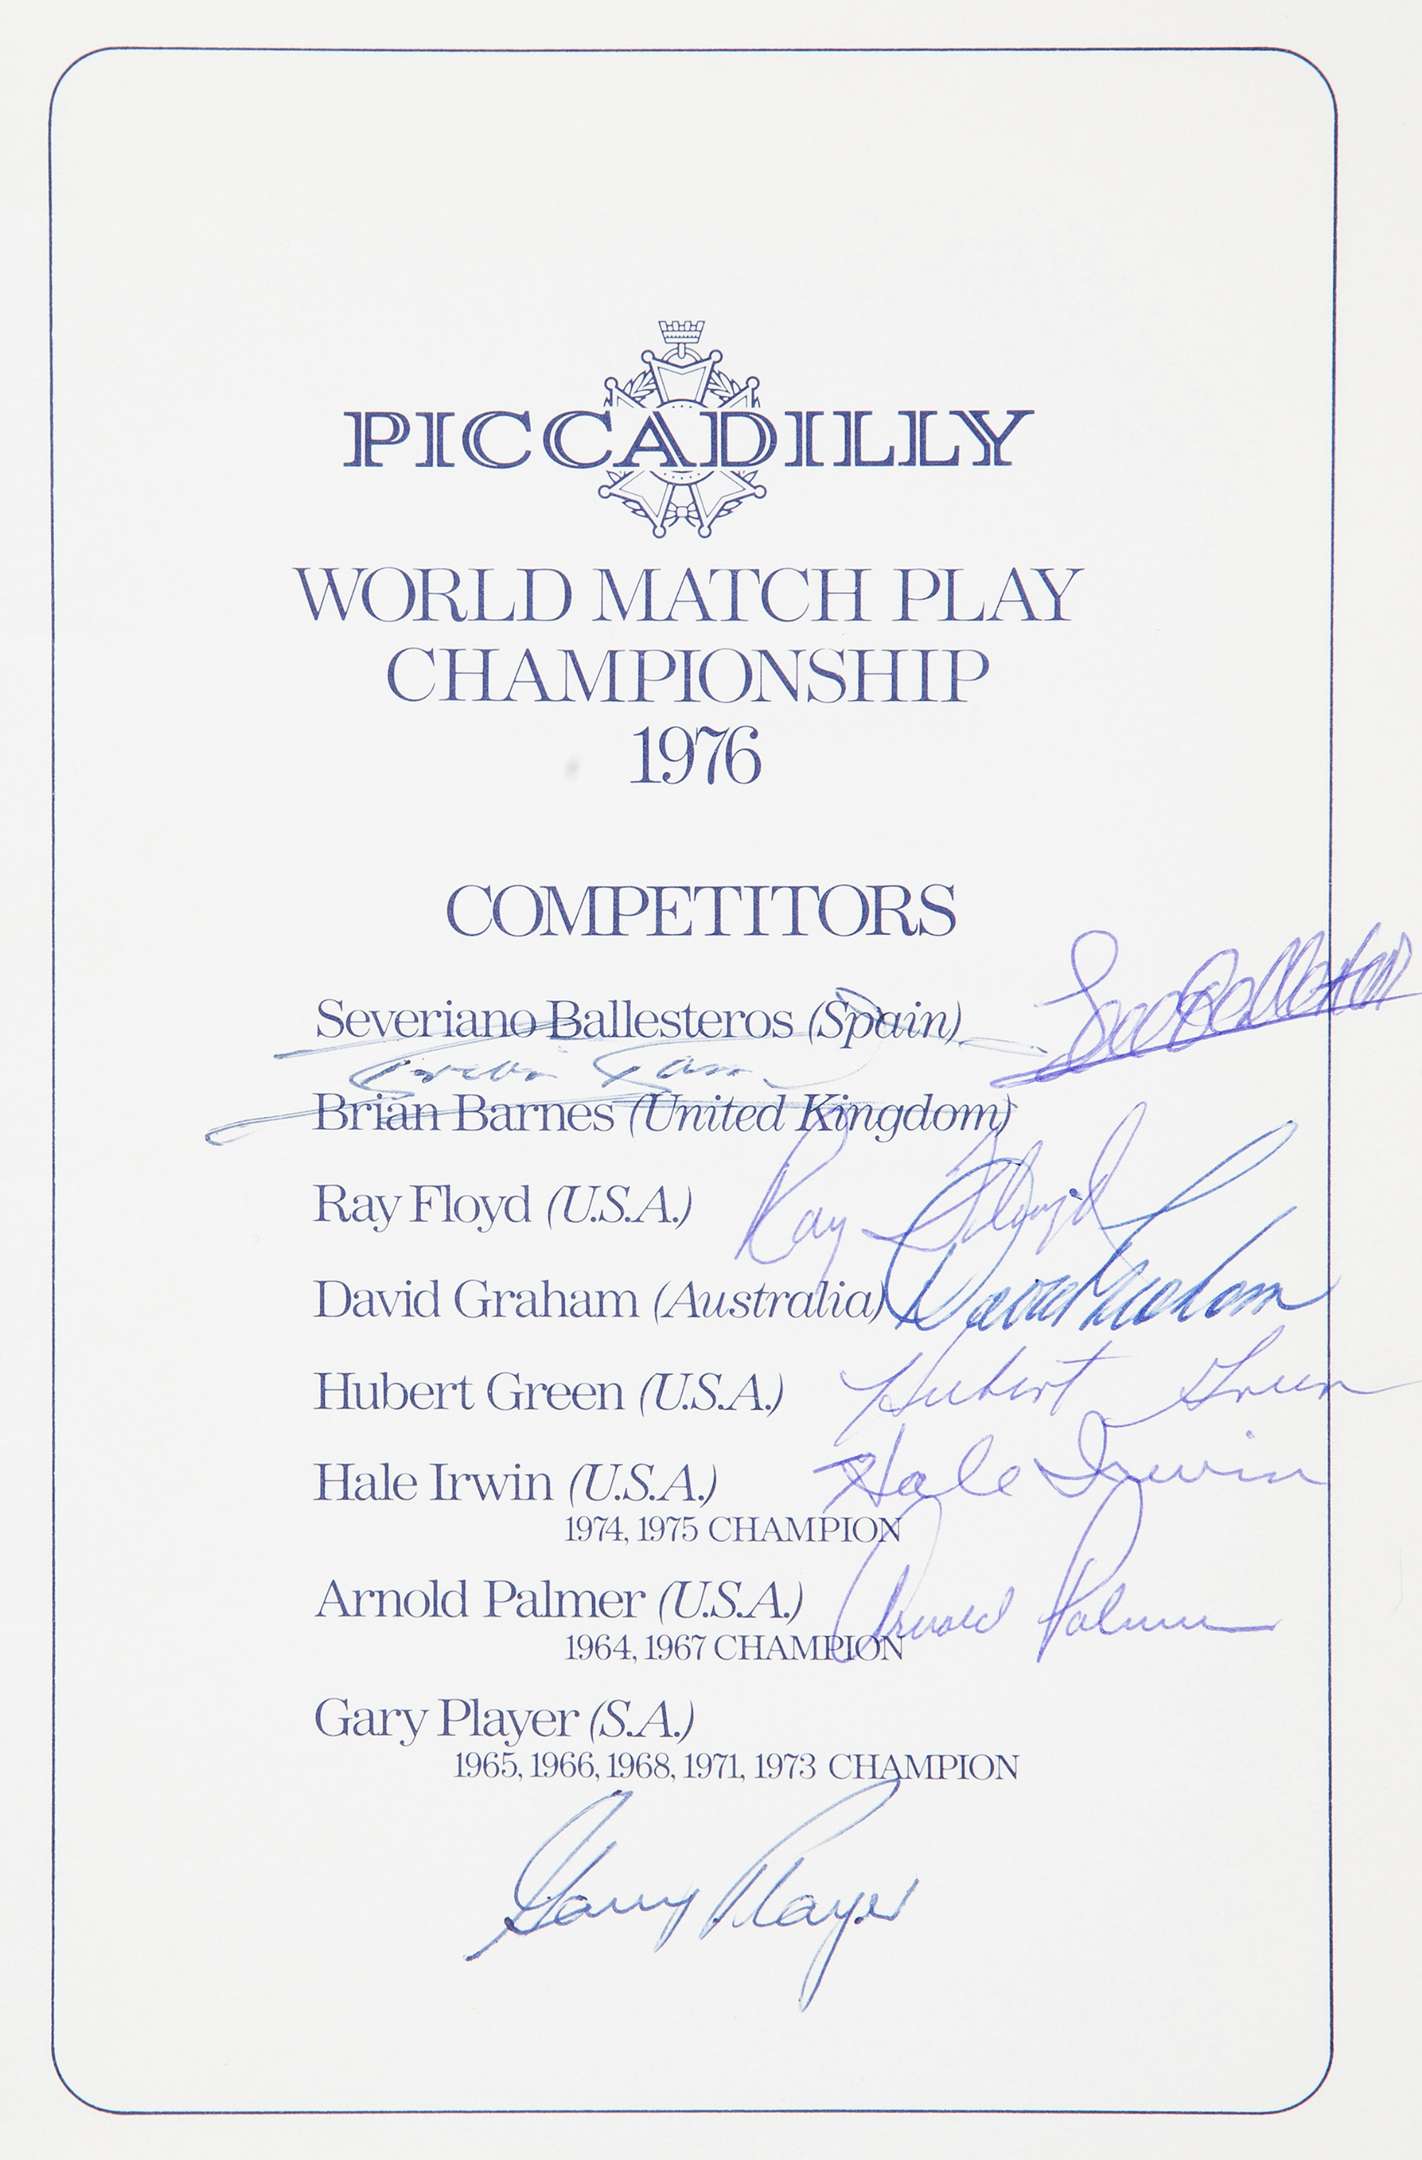 PICCADILLY
WORLD MATCH PLAY
CHAMPIONSHIP
1976
COMPETITORS
Severiano Ballesteros (Spain)
Seve Ballesteros
Brian Barnes
Brian Barnes (United Kingdom)
Ray Floyd (U.S.A.)
Ray Floyd
David Graham (Australia)
David Graham
Hubert Green (U.S.A.)
Hubert Green
Hale Irwin (U.S.A.)
Hale Irwin
1974, 1975 CHAMPION
Arnold Palmer (U.S.A.)
Arnold Palmer
1964, 1967 CHAMPION
Gary Player (S.A.)
1965, 1966, 1968, 1971, 1973 CHAMPION
Gary Player